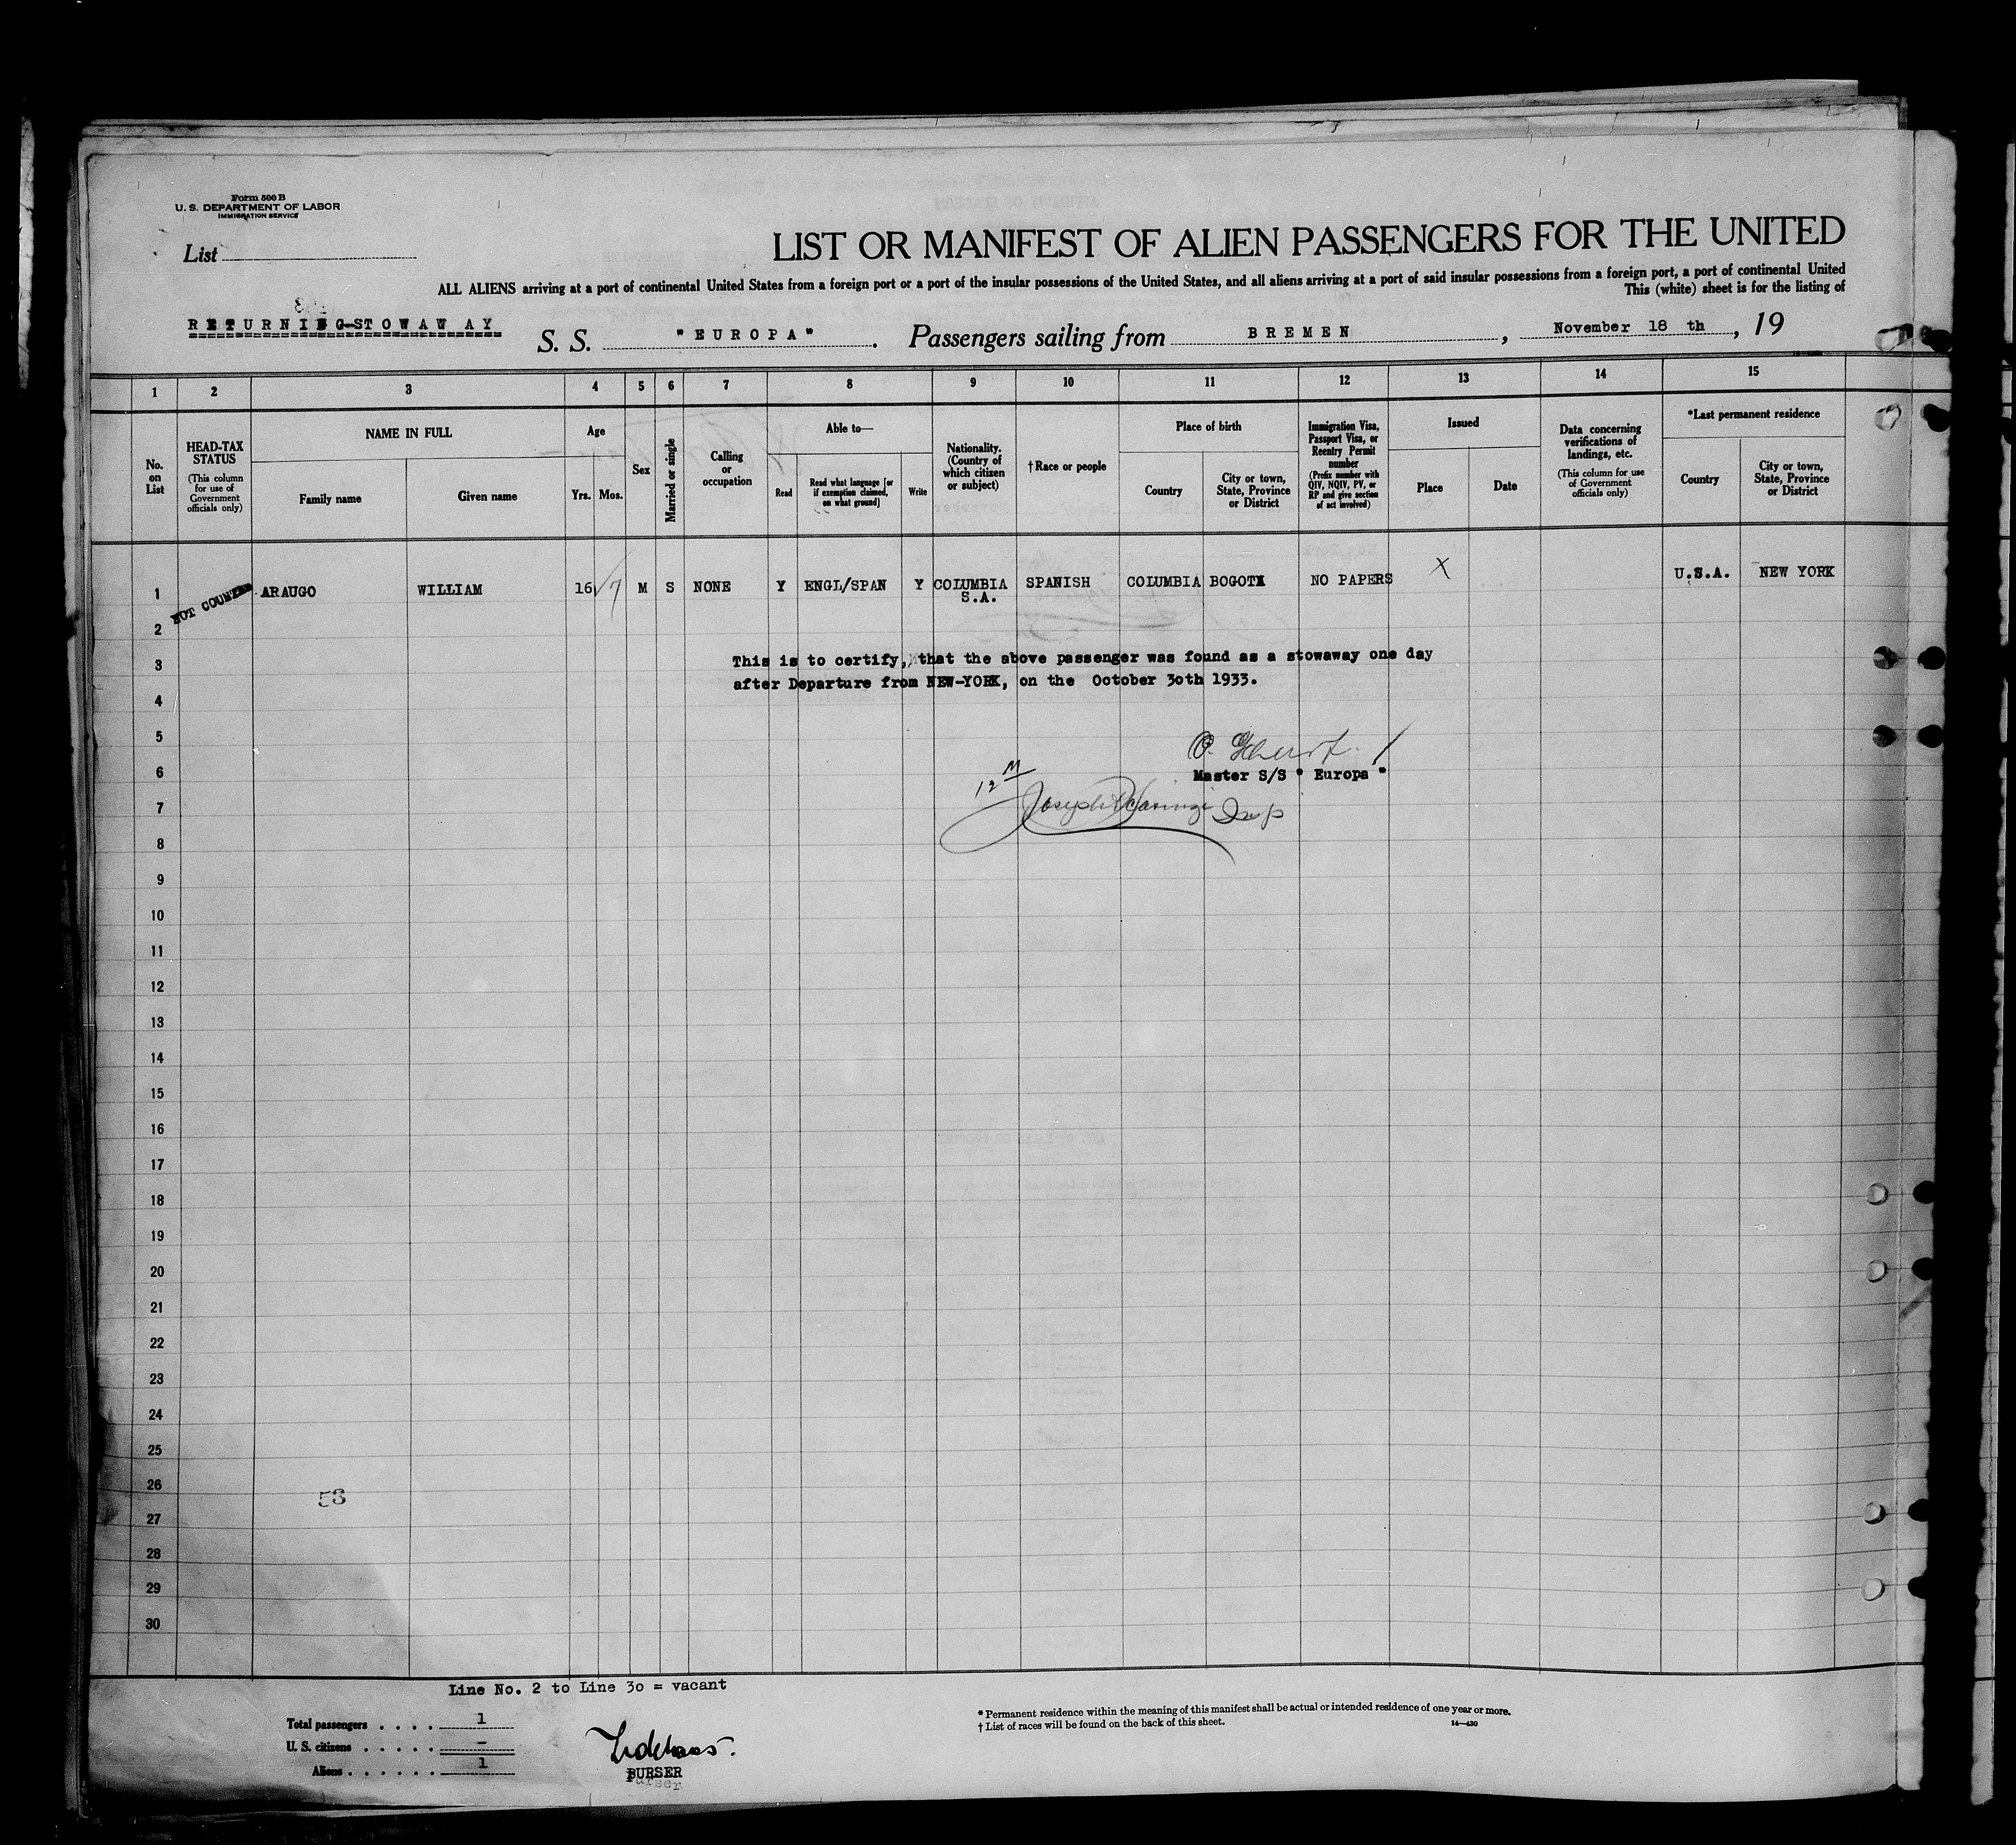 Form 500 B
U. S. DEPARTMENT OF LABOR
IMMIGRATION SERVICE
List
LIST OR MANIFEST OF ALIEN PASSENGERS FOR THE UNITED
ALL ALIENS arriving at a port of continental United States from a foreign port or a port of the insular possessions of the United States, and all aliens arriving at a port of said insular possessions from a foreign port, a port of continental United
This (white) sheet is for the listing of
RETURNING-STOWAWAY S. S. "EUROPA". Passengers sailing from BREMEN, November 18 th, 19
1 2 3 4 5 6 7 8 9 10 11 12 13 14 15
No. on List
HEAD-TAX STATUS
(This column for use of Government officials only)
NAME IN FULL
Family name Given name
Age
Yrs. Mos.
Sex
Married or single
Calling or occupation
Able to—
Read
Read what language [or if exemption claimed, on what ground]
Write
Nationality. (Country of which citizen or subject)
†Race or people
Place of birth
Country
City or town, State, Province or District
Immigration Visa, Passport Visa, or Reentry Permit number
(Prefix number with QIV, NQIV, PV, or RP and give section of act involved)
Issued
Place Date
Data concerning verifications of landings, etc.
(This column for use of Government officials only)
*Last permanent residence
Country
City or town, State, Province or District
1 NOT COUNTED ARAUGO WILLIAM 16 7 M S NONE Y ENGL/SPAN Y COLUMBIA S.A. SPANISH COLUMBIA BOGOTA NO PAPERS X U.S.A. NEW YORK
2
3 This is to certify, that the above passenger was found as a stowaway one day
after Departure from NEW-YORK, on the October 30th 1933.
4
5
6 Master S/S " Europa "
12 M
7 Joseph Insp
8
9
10
11
12
13
14
15
16
17
18
19
20
21
22
23
24
25
26
53
27
28
29
30
Line No. 2 to Line 30 = vacant
Total passengers . . . . 1
U. S. citizens . . . . . –
Aliens . . . . . . 1
PURSER
Purser
* Permanent residence within the meaning of this manifest shall be actual or intended residence of one year or more.
† List of races will be found on the back of this sheet.
14—430